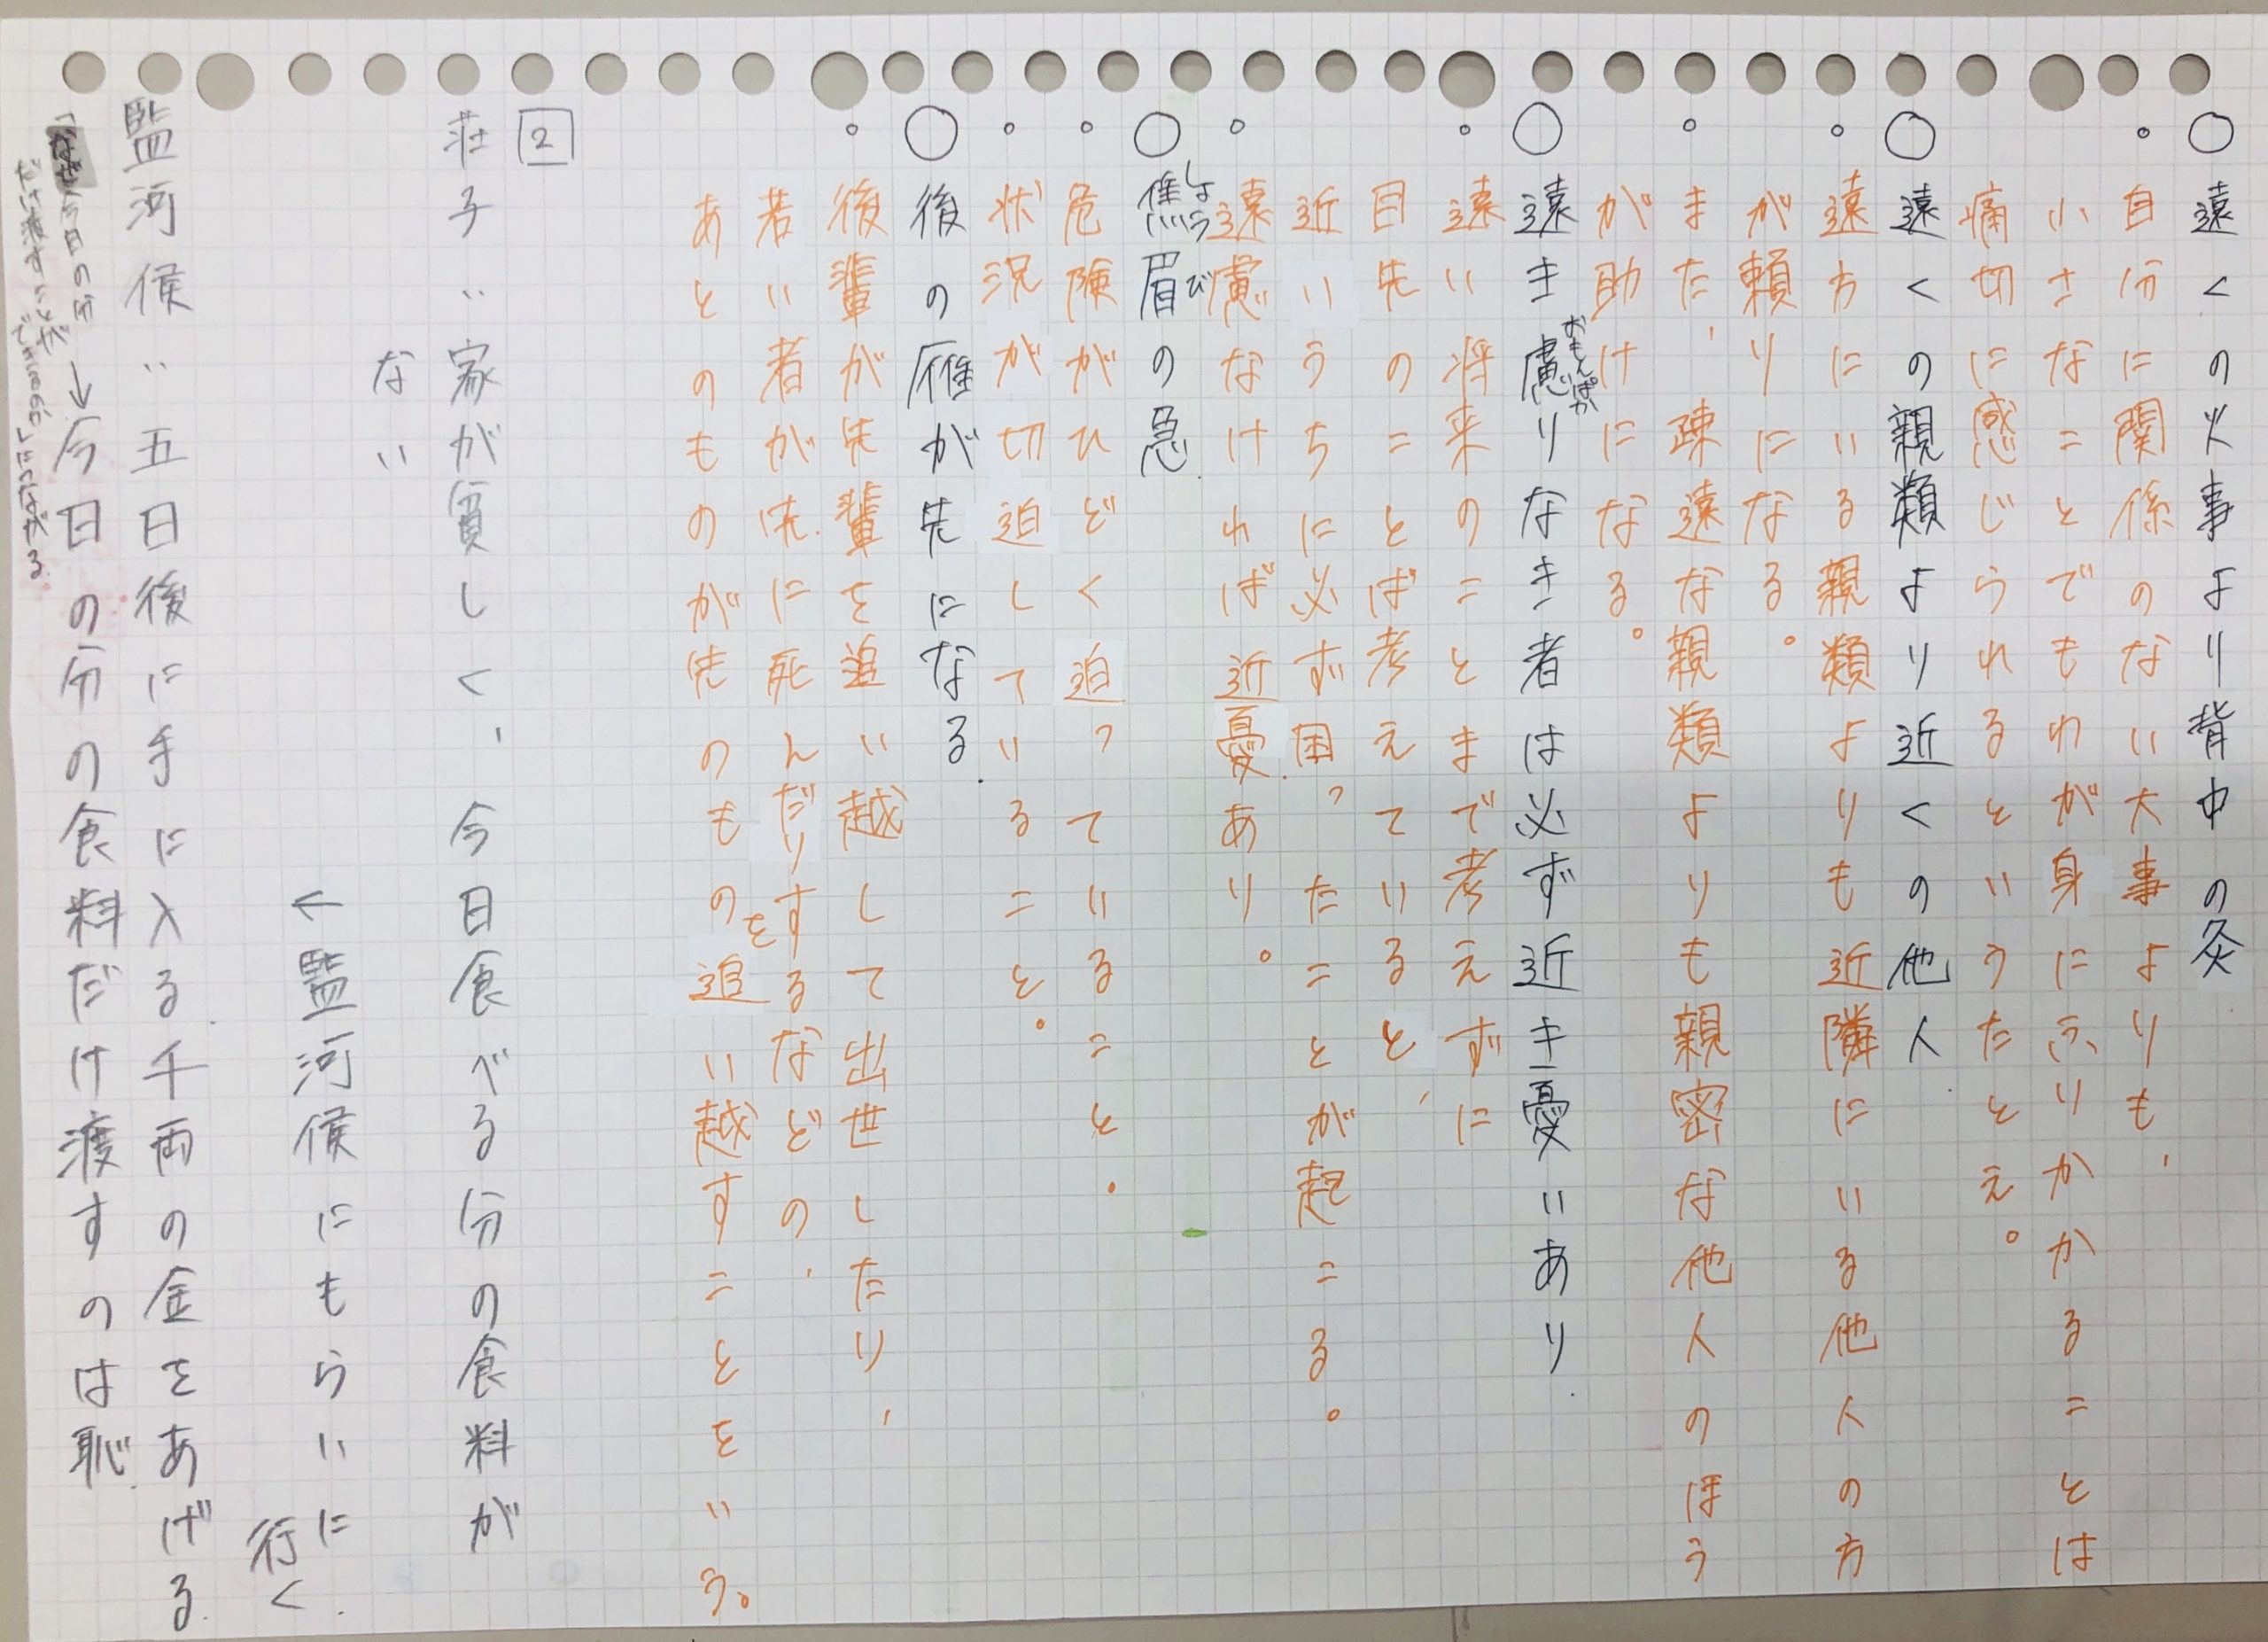 ○遠くの火事より背中の灸
。自分に関係のない大事よりも、
小さなことでもわが身にふりかかることは
痛切に感じられるというたとえ。
○遠くの親類より近くの他人
。遠方にいる親類よりも近隣にいる他人の方
が頼りになる。
。また、疎遠な親類よりも親密な他人のほう
が助けになる。
○遠き慮りなき者は必ず近き憂いあり
おもんぱか
。遠い将来のことまで考えずに
目先のことばと考えていると、
近いうちに必ず困ったことが起こる。
。遠慮なければ近憂あり。
○焦眉の急
しょうび
。危険がひどく迫っていること。
。状況が切迫していること。
○後の雁が先になる
。後輩が先輩を追い越して出世したり、
若い者が先に死んだりするなどの、
あとのものが先のものを追い越すことをいう。
2
荘子‥家が貧しく、今日食べる分の食料が
ない
←監河侯にもらいに行く
監河侯‥五日後に手に入る千両の金をあげる
↓今日の分の食料だけ渡すのは恥